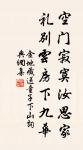 空门寂寞汝思家
礼别云房下九华
金地藏送童子下山词
典调集